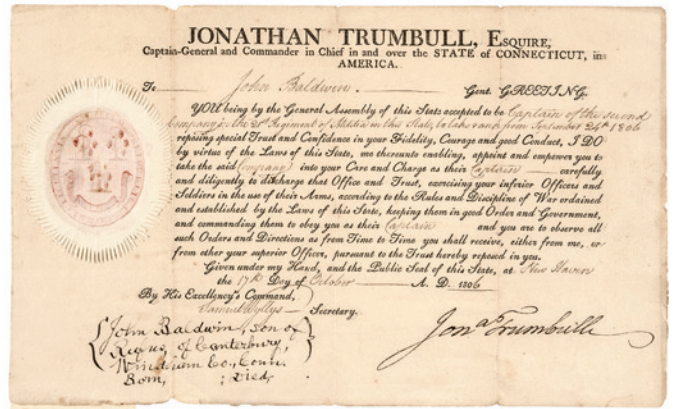 JONATHAN TRUMBULL, ESQUIRE,
Captain-General and Commander in Chief in and over the STATE of CONNECTICUT, in
AMERICA.
To John Baldwin. Gent. GREETING.
YOU being by the General Assembly of this State accepted to be Captain of the second
Company in the 21st Regiment of Militia in this State, to take rank from September 24th 1806
reposing special Trust and Confidence in your Fidelity, Courage and good Conduct, I DO
by virtue of the Laws of this State, me thereunto enabling, appoint and empower you to
take the said Company into your Care and Charge as their Captain carefully
and diligently to discharge that Office and Trust, exercising your inferior Officers and
Soldiers in the use of their Arms, according to the Rules and Discipline of War ordained
and established by the Laws of this State, keeping them in good Order and Government,
and commanding them to obey you as their Captain and you are to observe all
such Orders and Directions as from Time to Time you shall receive, either from me, or
from other your superior Officer, pursuant to the Trust hereby reposed in you.
Given under my Hand, and the Public Seal of this State, at New Haven
the 17th Day of October A. D. 1806
By His Excellency's Command,
Samuel Wyllys Secretary.
Jonah Trumbull
{John Baldwin, son of
Rufus of Canterbury,
Windham Co., Conn.
Born, ; Died,}